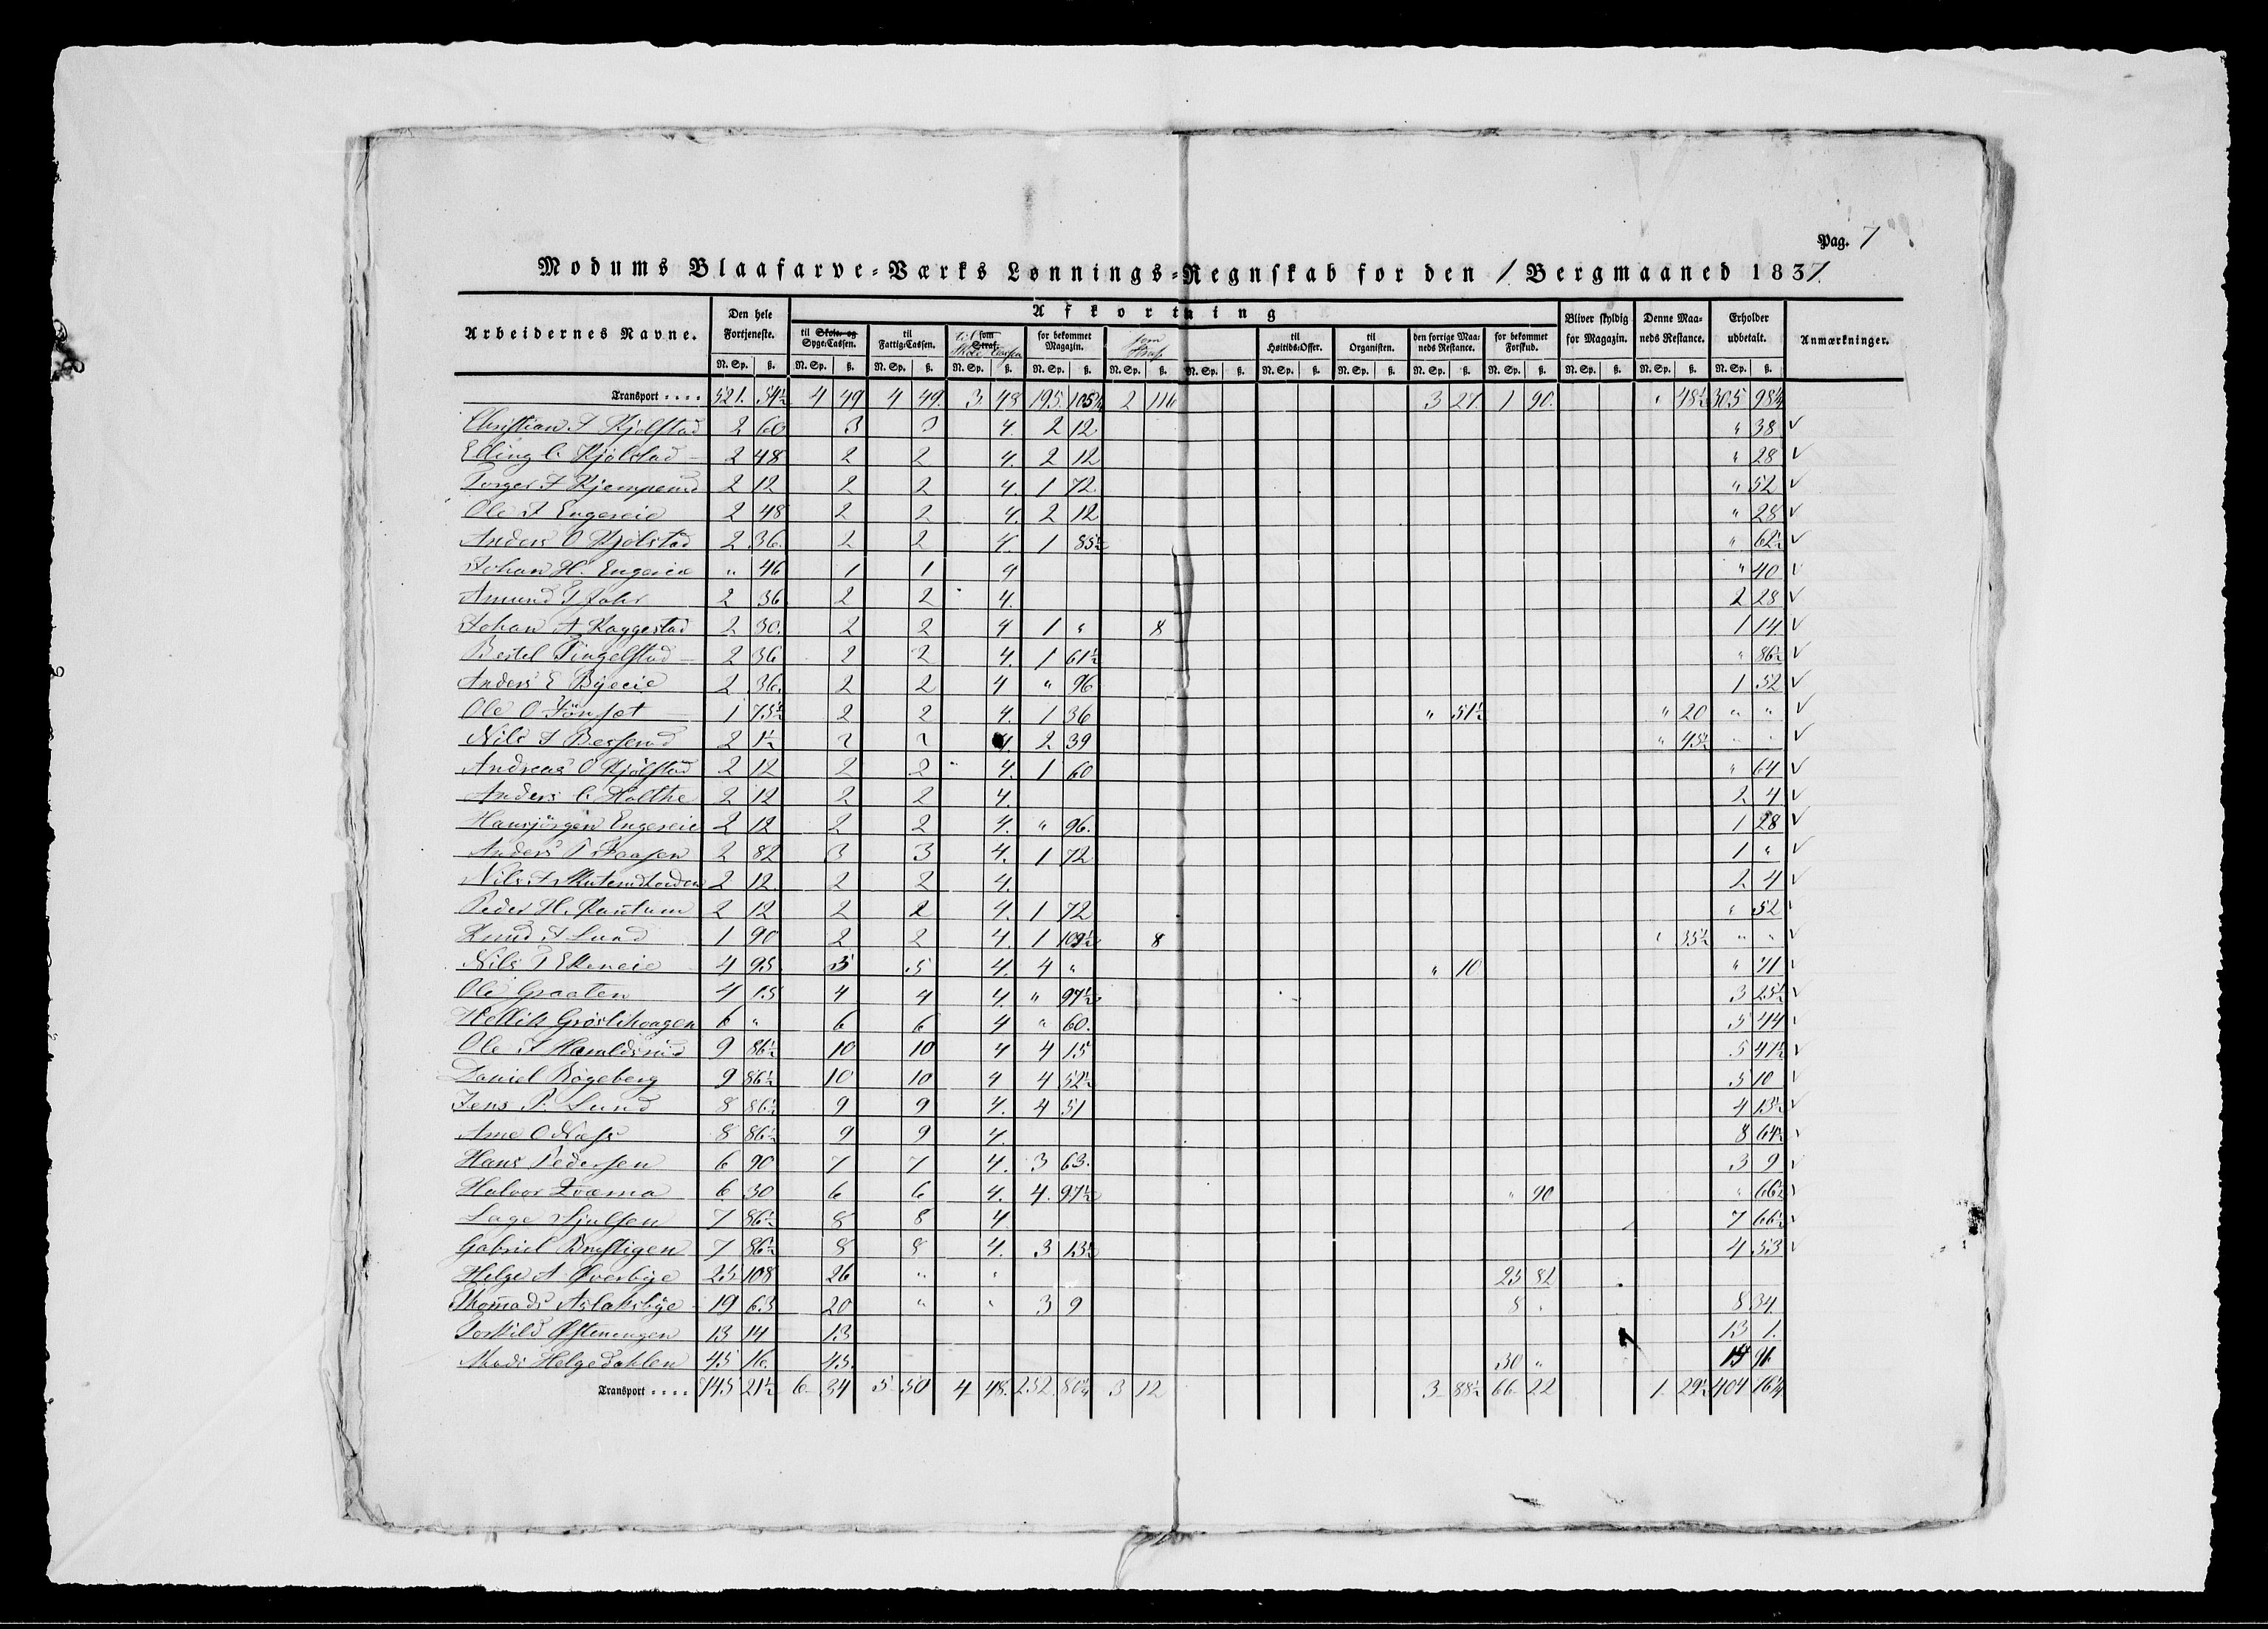 Pag. 7
Modums Blaafarve-Værks Lønnings-Regnskab for den 1. Bergmaaned 1837.
Arbeidernes Navne. Den hele Fortjeneste. Afkortning Bliver skyldig for Magazin. Denne Maaneds Restance. Erholder udbetalt. Anmærkninger.
til Skole- og Syge-Cassen. til Fattig-Cassen. som Straf. til Skole Cassen for bekommet Magazin. som Straf til Høitids-Offer. til Organisten. den forrige Maaneds Restance. for bekommet Forskud.
N. Sp. ß. N. Sp. ß. N. Sp. ß. N. Sp. ß. N. Sp. ß. N. Sp. ß. N. Sp. ß. N. Sp. ß. N. Sp. ß. N. Sp. ß. N. Sp. ß. N. Sp. ß. N. Sp. ß. N. Sp. ß.
Transport .... 521. 54½ 4 49 4 49. 3 48 195. 105¼ 2 116 3 27. 1 90. " 48½ 305 98¼
Christian J Kjølstad 2 60 3 3 4. 2 12 " 38 ✓
Elling C. Kjølstad 2 48 2 2 4. 2 12 " 28 ✓
Torger J Kjemperud 2 12 2 2 4. 1 72. " 52 ✓
Ole J Engereie 2 48 2 2 4. 2 12 " 28 ✓
Anders O Kjølstad 2 36. 2 2 4. 1 85½ " 62½ ✓
Johan H. Engereie " 46 1 1 4 " 40 ✓
Amund T 2 36 2 2 4. 2 28 ✓
Johan A Kaggestad 2 30. 2 2 4 1 " 8 1 14 ✓
Bertel Tingelstad 2 36 2 2 4. 1 61½ " 86½ ✓
Anders E Byeeie 2 36. 2 2 4 " 96 1 52 ✓
Ole O Tønset 1 75½ 2 2 4. 1 36 " 51½ " 20 " " ✓
Nils J Besserud 2 1½ 2 2 4. 2 39 " 45½ " " ✓
Andreas O Kjølstad 2 12 2 2 4. 1 60 " 64 ✓
Anders C. Holthe 2 12 2 2 4. 2 4 ✓
Hansjørgen Engereie 2 12 2 2 4. " 96. 1 28 ✓
Anders P Faasen 2 82 3 3 4. 1 72 1 " ✓
Nils A 2 12 2 2 4. 2 4 ✓
Peder H. Pantum 2 12 2 2 4. 1 72 " 52
Knud A Lund 1 90 2 2 4. 1 109½ 8 " 35½ " " ✓
Nils T Ekeneie 4 95 5 5 4. 4 " " 10 " 71
Ole Graaten 4 15 4 4 4. " 97½ 3 25½ ✓
Hellik Grøslihougen 6 " 6 6 4 " 60. 5 44
Ole J Haraldsrud 9 86½ 10 10 4 4 15 5 47½ ✓
Daniel Bøgeberg 9 86½ 10 10 4 4 52½ 5 10
Jens P. Lund 8 86½ 9 9 4. 4 51 4 13½ ✓
Arne O Næss 8 86½ 9 9 4. 8 64½
Hans Pedersen 6 90 7 7 4. 3 63. 3 9
Halvor Evæma 6 30 6 6 4. 4. 97½ " 90 " 66½
Lage Sjulsen 7 86½ 8 8 4 7 66½
Gabriel 7 86½ 8 8 4. 3 13½ 4 53 ✓
Helge A Øverbye 25 108 26 " " 25 82
Thomads Aslaksbye 19 63 20 " " 3 9 8 " 8 34
Torkild 13 14 13 13 1.
Mads Helgedahlen 45 16. 45. 30 " 15 91
Transport .... 745 21½ 6 34 5 50 4 48. 252. 80¼ 3 12 3 88½ 66 22 1 29½ 404 16¼